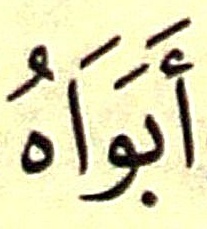 أَبَوَاهُ